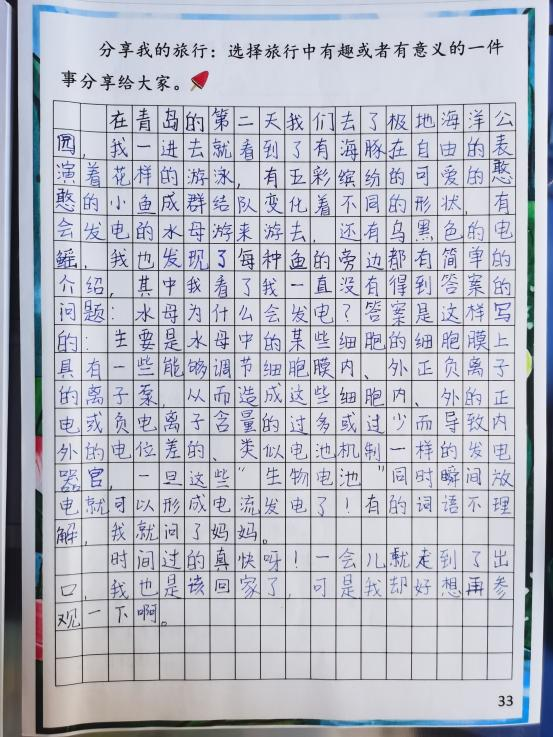 分享我的旅行：选择旅行中有趣或者有意义的一件
事分享给大家。
在青岛的第二天我们去了极地海洋公
园，我一进去就看到了有海豚在自由的表
演着花样的游泳，有五彩缤纷的可爱的憨
憨的小鱼成群结队变化着不同的形状，有
会发电的水母游来游去，还有乌黑色的电
鳐，我也发现了每种鱼的旁边都有简单的
介绍，其中我看了我一直没有得到答案的
问题：水母为什么会发电？答案是这样写
的：主要是水母中的某些细胞的细胞膜上
具有一些能够调节细胞膜内、外正负离子
的离子泵，从而造成这些细胞内、外的正
电或负电离子含量的过多或过少而导致内
外的电位差的、类似电池机制一样的发电
器官，一旦这些“生物电池”同时瞬间放
电就可以形成电流发电了！有的词语不理
解，我就问了妈妈。
时间过的真快呀！一会儿就走到了出
口，我也是该回家了，可是我却好想再参
观一下啊。
33